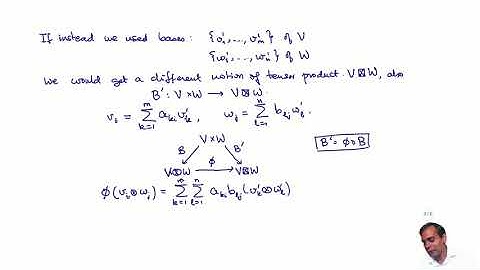 If instead we used bases: {v₁', ..., vₘ'} of V
{w₁', ..., wₙ'} of W
we would get a different notion of tensor product V⊠W, also
B': V×W → V⊠W.
vᵢ = ∑ₖ₌₁ᵐ aₖᵢ vₖ', wⱼ = ∑ₗ₌₁ⁿ bₗⱼ wₗ'.
V×W
B B' B' = ϕ∘B
V⊗W ϕ V⊠W
ϕ(vᵢ⊗wⱼ) = ∑ₖ₌₁ᵐ ∑ₗ₌₁ⁿ aₖᵢ bₗⱼ (vₖ'⊠wₗ')